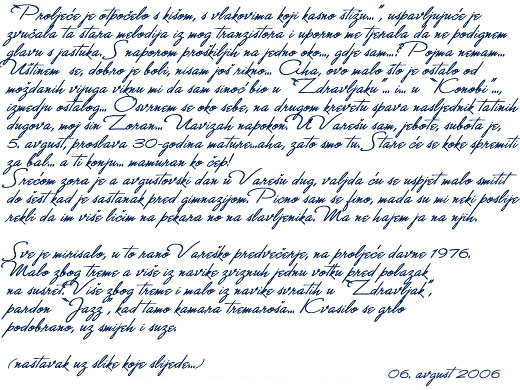 "Proljeće je otpočelo s kišom, s vlakovima koji kasno stižu...", uspavljujuće je
zvučala ta stara melodija iz mog tranzistora i uporno me tjerala da ne podignem
glavu s jastuka. S naporom proškiljih na jedno oko..., gdje sam...? Pojma nemam...
Uštinem se, dobro je boli, nisam još rikno... Oha, ovo malo što je ostalo od
moždanih vijuga viknu mi da sam sinoć bio u "Zdravljaku"... i... u "Konobi"...,
izmedju ostalog... Osvrnem se oko sebe, na drugom krevetu spava nasljednik tatinih
dugova, moj sin Zoran... Navizah napokon. U Varešu sam, jebote, subota je,
5. avgust, proslava 30-godina mature...aha, zato smo tu. Stare će se koke spremiti
za bal... a ti konju... mamuran ko ćep!
Srećom zora je a avgustovski dan u Varešu dug, valjda ću se uspjet malo smitit
do šest kad je sastanak pred gimnazijom. Picno sam se fino, mada su mi neki poslije
rekli da im više ličim na pekara no na slavljenika. Ma ne hajem ja na njih.

Sve je mirisalo, u to rano Vareško predvečerje, na proljeće davne 1976.
Malo zbog treme a više iz navike zviznuh jednu votku pred polazak
na susret. Više zbog treme i malo iz navike svratih u "Zdravljak",
pardon "Jazz", kad tamo kamara tremaroša... Kvasilo se grlo
podobrano, uz smijeh i suze.

(nastavak uz slike koje slijede...)
06. avgust 2006